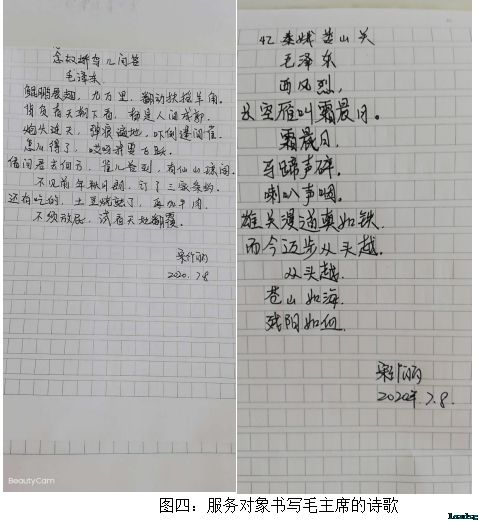 念奴娇鸟儿问答
毛泽东
鲲鹏展翅,九万里,翻动扶摇羊角。
背负青天朝下看,都是人间城郭。
炮火连天,弹痕遍地,吓倒蓬间雀。
怎么得了,哎呀我要飞跃。
借问君去何方,雀儿答到,有仙山琼阁。
不见前年秋月朗,订了三家条约。
还有吃的,土豆烧熟了,再加牛肉。
不须放屁,试看天地翻覆。
2020.7.8
BeautyCam
忆秦娥娄山关
毛泽东
西风烈,
长空雁叫霜晨月。
霜晨月,
马蹄声碎,
喇叭声咽。
雄关漫道真如铁,
而今迈步从头越。
从头越,
苍山如海,
残阳如血。
2020年.7.8.
图四:服务对象书写毛主席的诗歌